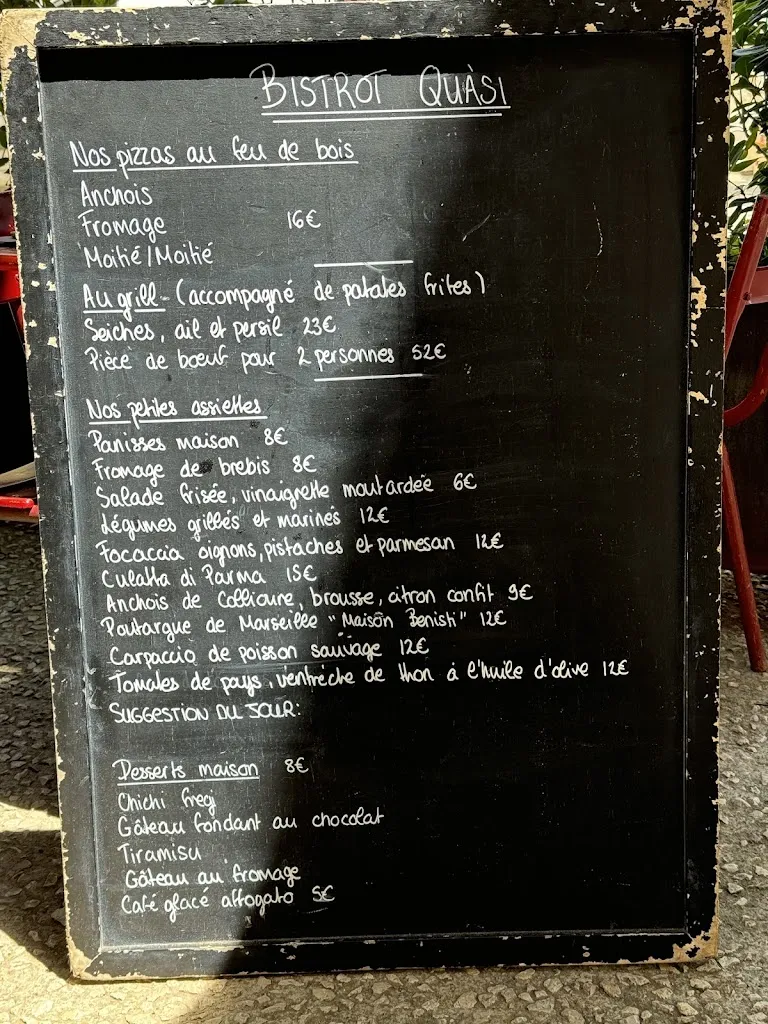 BISTROT QUÀSI
Nos pizzas au feu de bois
Anchois
Fromage 16€
Moitié/Moitié
Au grill - (accompagné de patates frites)
Seiches, ail et persil 23€
Pièce de bœuf pour 2 personnes 52€
Nos petites assiettes
Panisses maison 8€
Fromage de brebis 8€
Salade frisée, vinaigrette moutardée 6€
Légumes grillés et marinés 12€
Focaccia oignons, pistaches et parmesan 12€
Culatta di Parma 15€
Anchois de Collioure, brousse, citron confit 9€
Poutargue de Marseille "Maison Benisti" 12€
Carpaccio de poisson sauvage 12€
Tomates de pays, ventrèche de thon à l'huile d'olive 12€
SUGGESTION DU JOUR:
Desserts maison 8€
Chichi fregi
Gâteau fondant au chocolat
Tiramisu
Gâteau au fromage
Café glacé affogato 5€